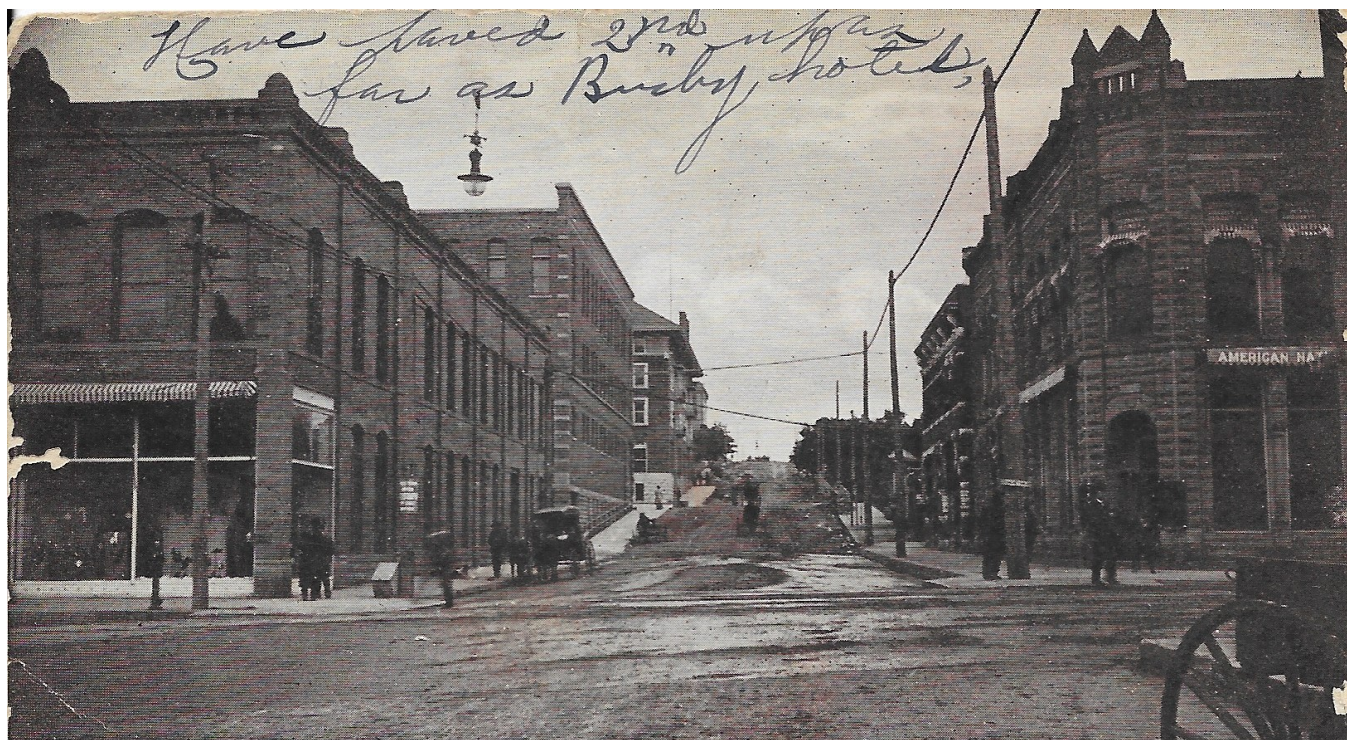 Have paved 2nd up as
far as Busby hotel,
AMERICAN NAT